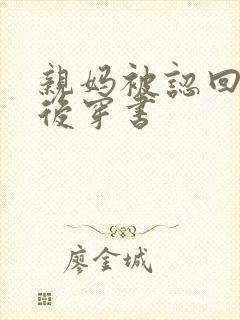 親媽被認回
後穿書
廖金城